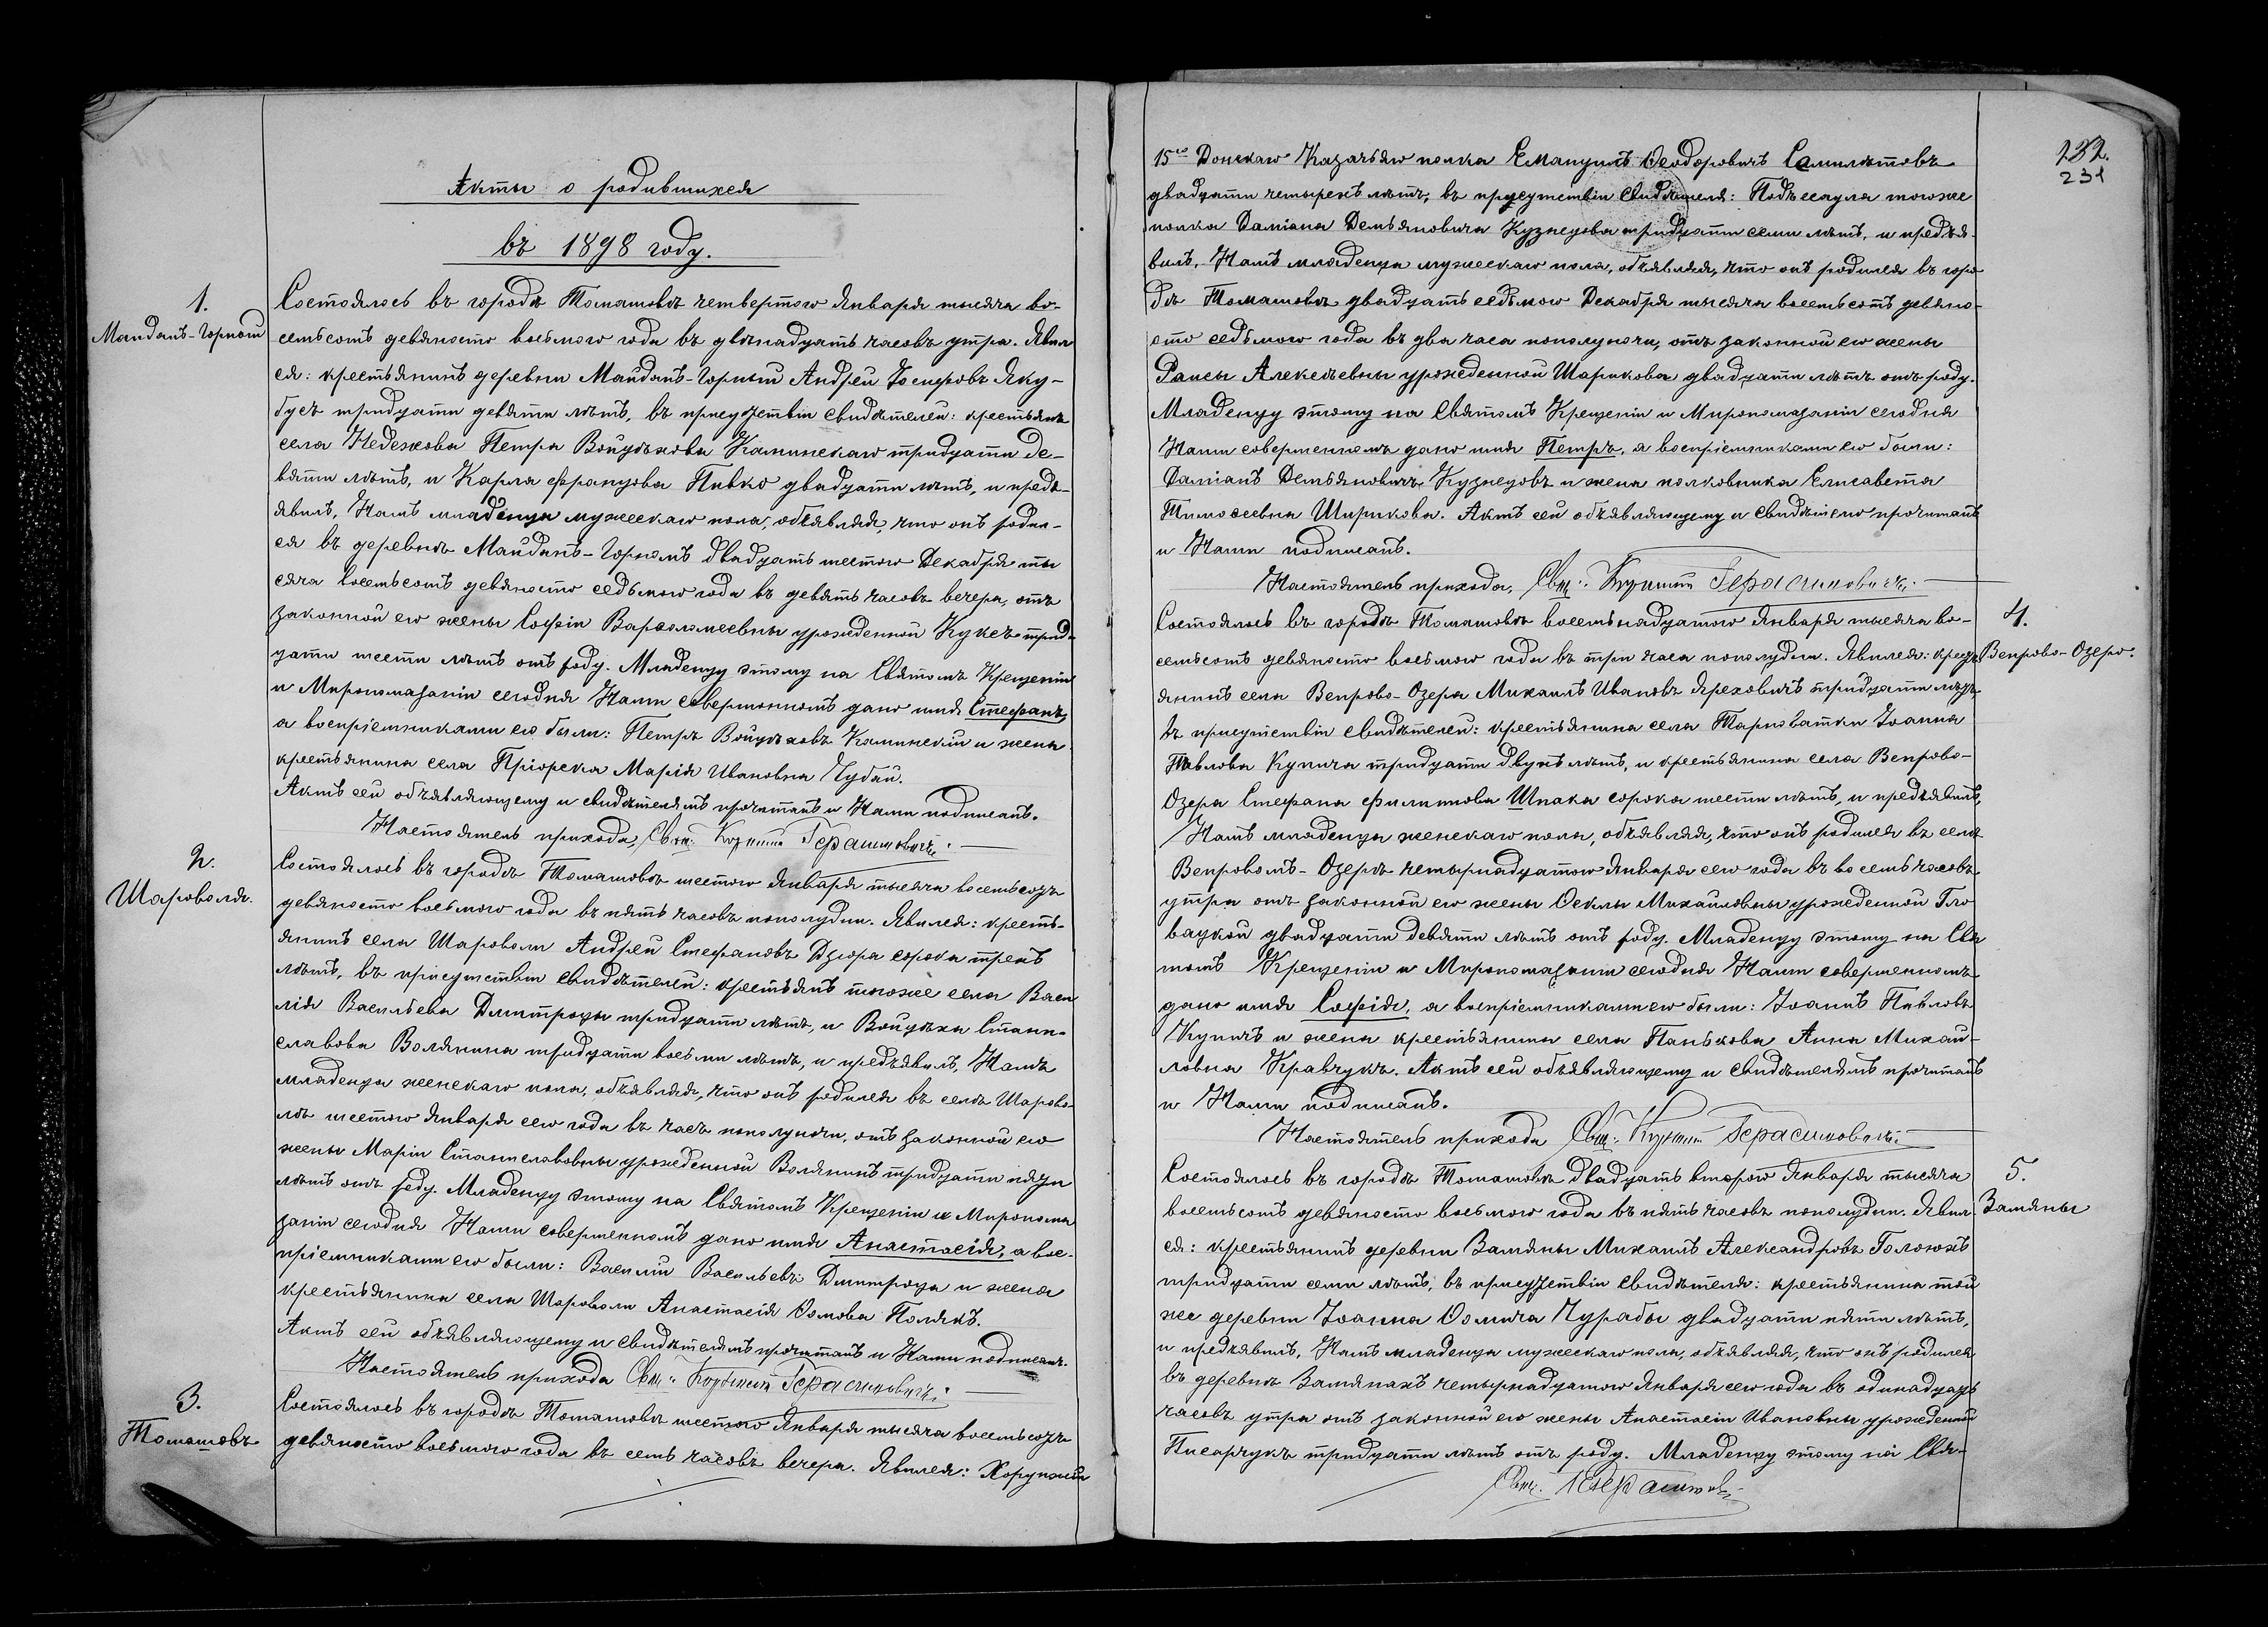 Акты о родившихся
въ 1898 году.
1.
Майданъ-Горный
Состоялось въ городѣ Томашовѣ четвертого Января тысяча во-
семьсотъ девяносто восьмого года въ двѣнадцать часовъ утра. Явил
ся: крестьянинъ деревни Майданъ-Горный Андрей Іосифовъ Яку-
бусъ тридцати девяти лѣтъ, въ присутствіи свидѣтелей: крестьянъ
села Недежова Петра Войцѣхова Каминскаго тридцати де-
вяти лѣтъ, и Карла Францова Пивко двадцати лѣтъ, и предъ-
явилъ, Намъ младенца мужескаго пола, объявляя, что онъ родил-
ся въ деревнѣ Майданѣ-Горномъ двадцать шестого Декабря ты
сяча восемьсотъ девяносто седьмого года въ девять часовъ вечера, отъ
законной его жены Софіи Варѳоломеевны урожденной Кукезъ трид-
цати шести лѣтъ отъ роду. Младенцу этому на Святомъ Крещеніи
и Миропомазаніи сегодня Нами совершонномъ дано имя Стефанъ,
а воспріемниками его были: Петръ Войцѣховъ Каминскій и жена
крестьянина села Пріорска Марія Ивановна Чубай.
Актъ сей объявляющему и свидѣтелямъ прочитанъ и Нами подписанъ.
Настоятель прихода, Свщ. Герасимовичъ.
2.
Шароволя.
Состоялось въ городѣ Томашовѣ шестого Января тысяча восемьсотъ
девяносто восьмого года въ пять часовъ пополудни. Явился: кресть-
янинъ села Шароволи Андрей Стефановъ Дзюра сорока трехъ
лѣтъ, въ присутствіи свидѣтелей: крестьянъ тогоже села Васи
лія Васильева Дмитроцы тридцати лѣтъ, и Войцѣха Стани-
славова Волянина тридцати восьми лѣтъ, и предъявилъ, Намъ
младенца женскаго пола, объявляя, что онъ родился въ селѣ Шарово-
лѣ шестого Января сего года въ часъ пополуночи, отъ законной его
жены Маріи Станиславовны урожденной Волянинъ тридцати пяти
лѣтъ отъ роду. Младенцу этому на Святомъ Крещеніи и Миропома
заніи сегодня Нами совершенномъ дано имя Анастасія, а вос-
пріемниками его были: Василій Васильевъ Дмитроца и жена
крестьянина села Шароволи Анастасія Ѳомова Полякъ.
Актъ сей объявляющему и свидѣтелямъ прочитанъ и Нами подписанъ.
Настоятель прихода Свщ. Герасимовичъ.
3.
Томашовъ
Состоялось въ городѣ Томашовѣ шестого Января тысяча восемьсотъ
девяносто восьмого года въ семь часовъ вечера. Явился: Хорунжій
232.
231
15го Донскаго Казачьяго полка Емануилъ Ѳеодоровичъ Самилѣтовъ
двадцати четырехъ лѣтъ, въ присутствіи свидѣтеля: Подъесаула тогоже
полка Даміана Демьяновича Кузнецова тридцати семи лѣтъ, и предъя-
вилъ, Намъ младенца мужескаго пола, объявляя, что онъ родился въ горо
дѣ Томашовѣ двадцать седьмого Декабря тысяча восемьсотъ девяно-
сто седьмого года въ два часа пополуночи, отъ законной его жены
Раисы Алексѣевны урожденной Шарикова двадцати лѣтъ отъ роду.
Младенцу этому на Святомъ Крещеніи и Миропомазаніи сегодня
Нами совершенномъ дано имя Петръ, а воспріемниками его были:
Даміанъ Демьяновичъ Кузнецовъ и жена полковника Елисавета
Тимоѳеевна Ширикова. Актъ сей объявляющему и свидѣтелю прочитанъ
и Нами подписанъ.
Настоятель прихода, Свщ. Герасимовичъ.
4.
Вепрово-Озеро.
Состоялось въ городѣ Томашовѣ восемьнадцатого Января тысяча во-
семьсотъ девяносто восьмого года въ три часа пополудни. Явился: крест
янинъ села Вепрово-Озера Михаилъ Ивановъ Яреховичъ тридцати лѣтъ
въ присутствіи свидѣтелей: крестьянина села Тарноватки Іоанна
Павлова Купича тридцати двухъ лѣтъ, и крестьянина села Вепрово-
Озера Стефана Филиппова Шпака сорока шести лѣтъ, и предъявилъ,
Намъ младенца женскаго пола, объявляя, что онъ родился въ селѣ
Вепровомъ-Озерѣ четырнадцатого Января сего года въ восемь часовъ
утра отъ законной его жены Ѳеклы Михайловны урожденной Гло
вацкой двадцати девяти лѣтъ отъ роду. Младенцу этому на Свя
томъ Крещеніи и Миропомазаніи сегодня Нами совершенномъ
дано имя Софія, а воспріемниками его были: Іоаннъ Павловъ
Купичъ и жена крестьянина села Панькова Анна Михай-
ловна Кравчукъ. Актъ сей объявляющему и свидѣтелямъ прочитанъ
и Нами подписанъ.
Настоятель прихода Свщ. Герасимовичъ.
5.
Замяны
Состоялось въ городѣ Томашовѣ двадцать второго Января тысяча
восемьсотъ девяносто восьмого года въ пять часовъ пополудни. Явил-
ся: крестьянинъ деревни Замяны Михаилъ Александровъ Голоюхъ
тридцати семи лѣтъ, въ присутствіи свидѣтеля: крестьянина той
же деревни Іоанна Ѳомича Чурабы двадцати пяти лѣтъ,
и предъявилъ, Намъ младенца мужескаго пола, объявляя, что онъ родился
въ деревнѣ Замянахъ четырнадцатого Января сего года въ одинадцать
часовъ утра отъ законной его жены Анастасіи Ивановны урожденной
Писарчукъ тридцати лѣтъ отъ роду. Младенцу этому на Свя-
Свщ. Герасимовичъ